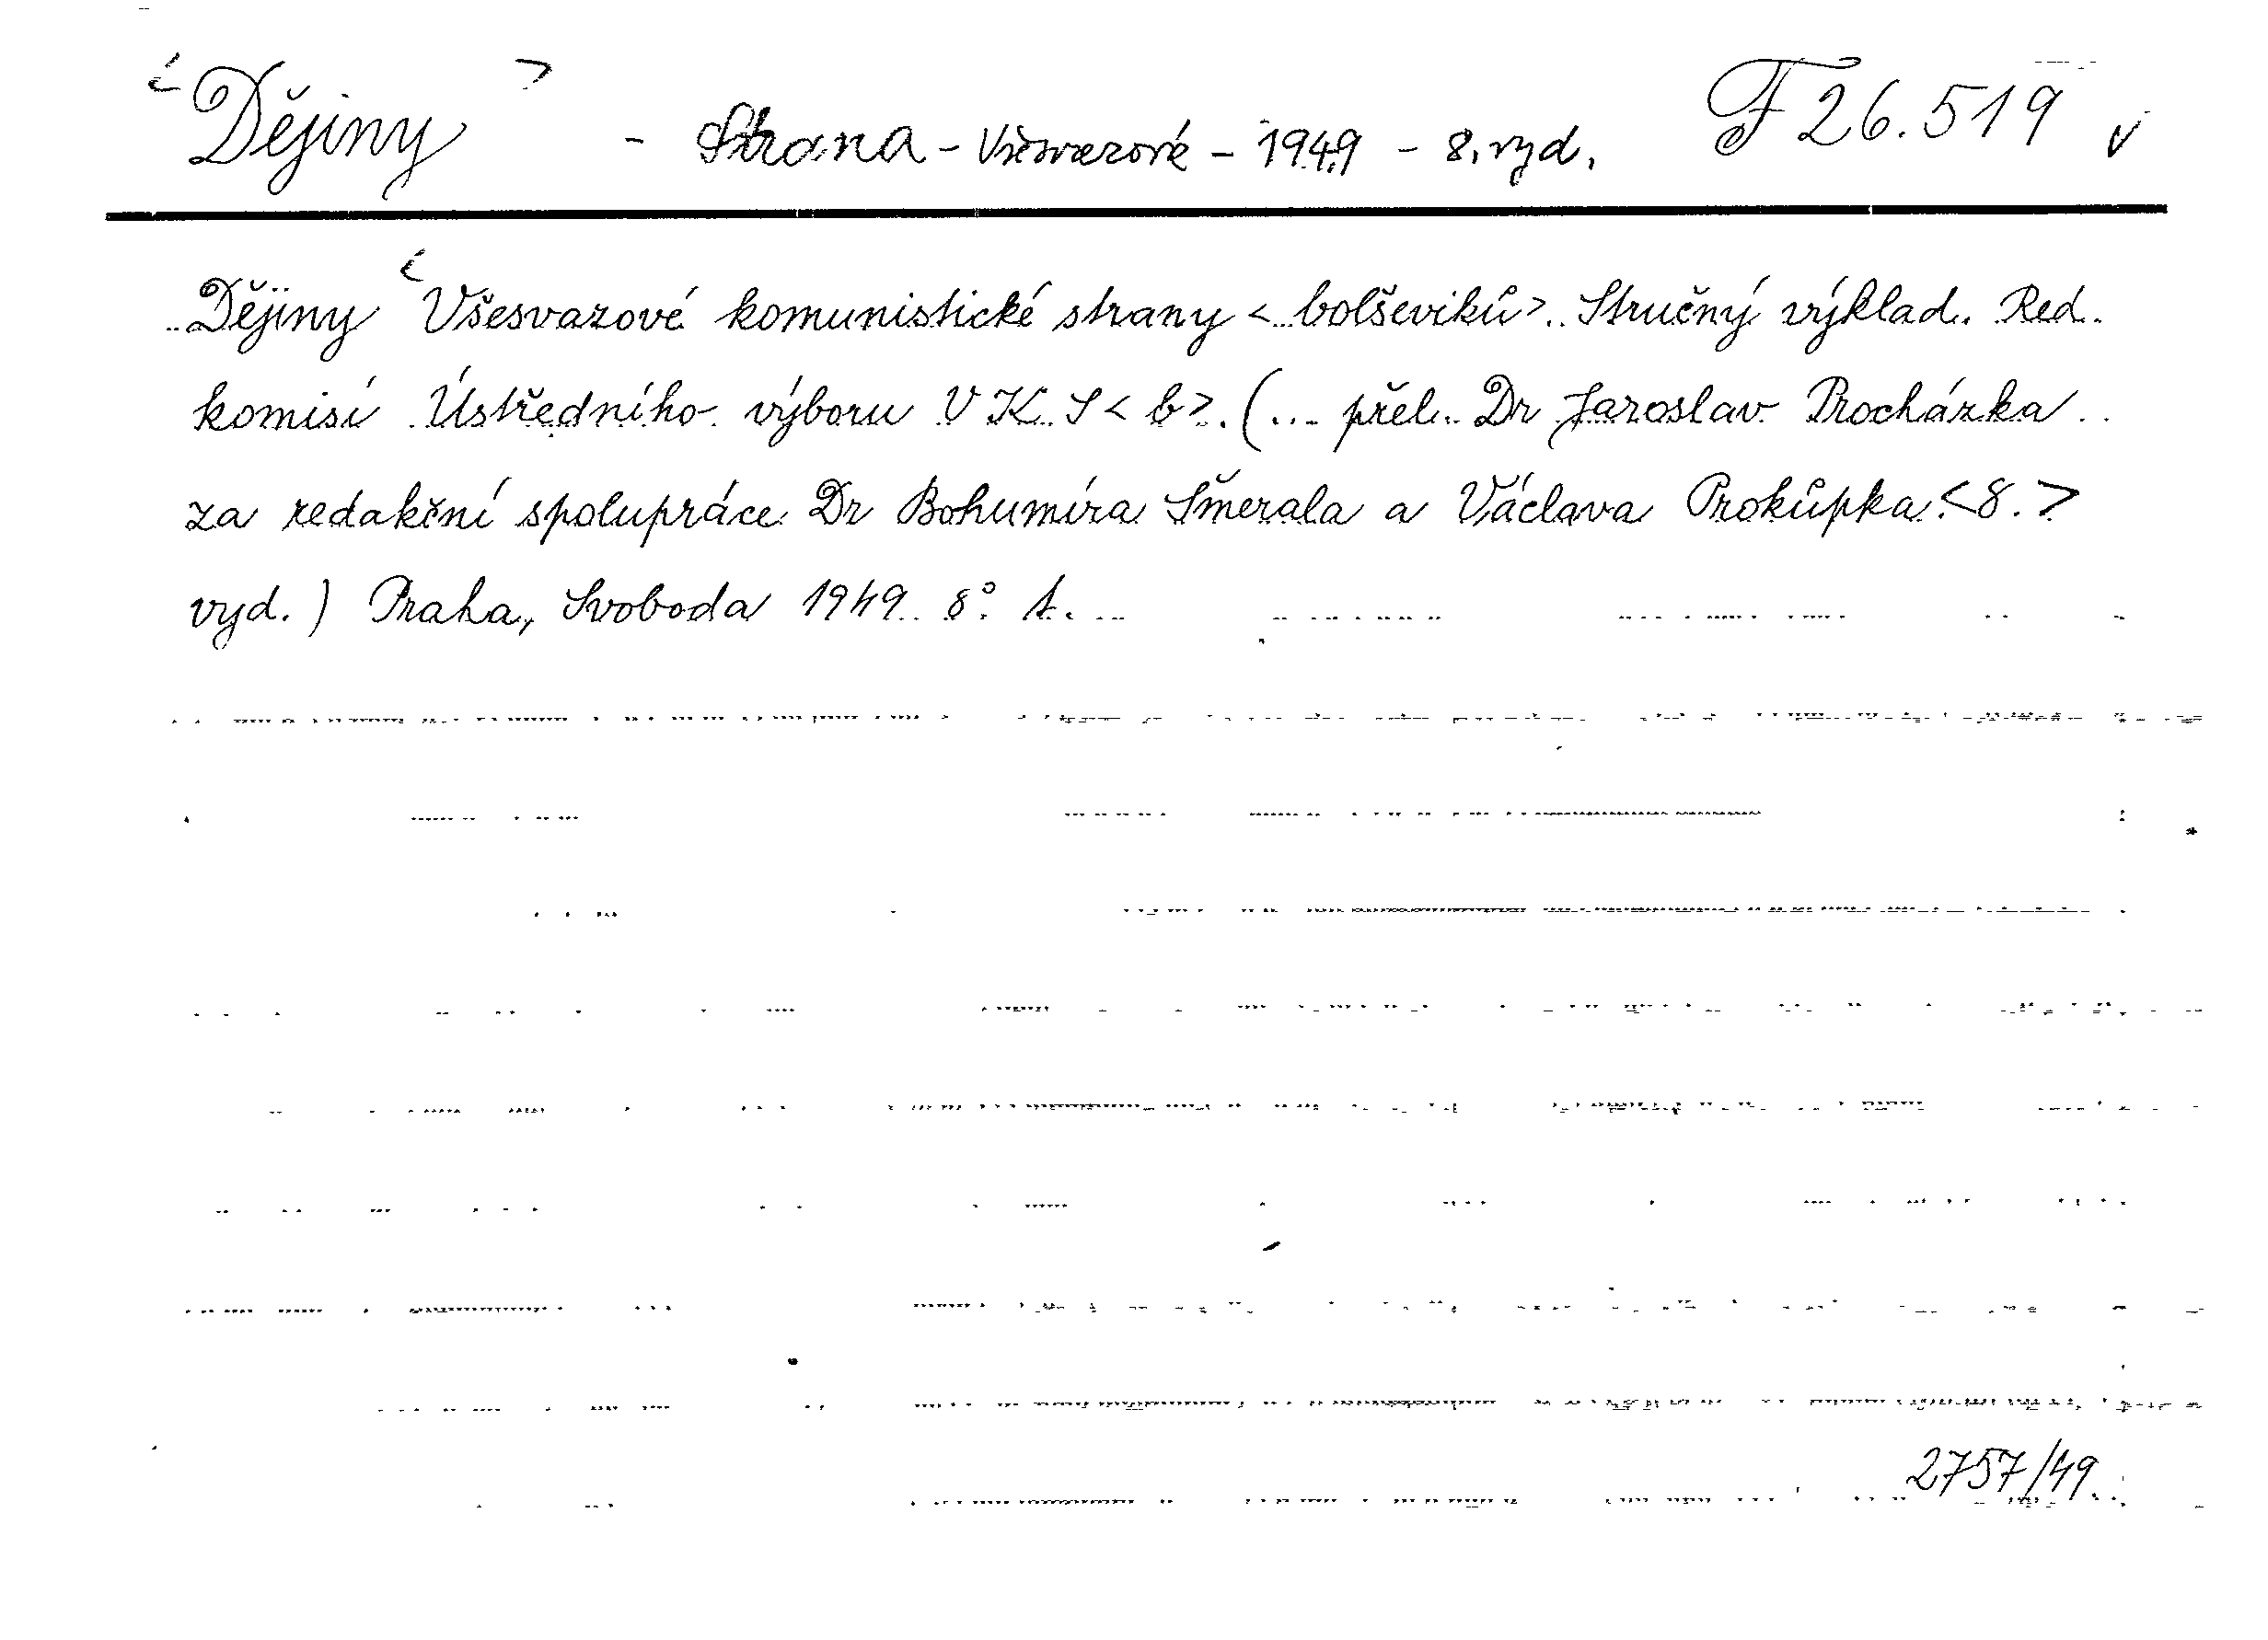 <Dějiny> - Strana - Všesvazové - 1949 - 8. vyd. F 26.519 v
Dějiny <Všesvazové komunistické strany <bolševiků>. Stručný výklad. Red.
komisí Ústředního výboru V K S <b>. (... přel. Dr Jaroslav Procházka
za redakční spolupráce Dr Bohumíra Šmerala a Václava Prokůpka. <8.>
vyd.) Praha, Svoboda 1949. 8°.
2757/49